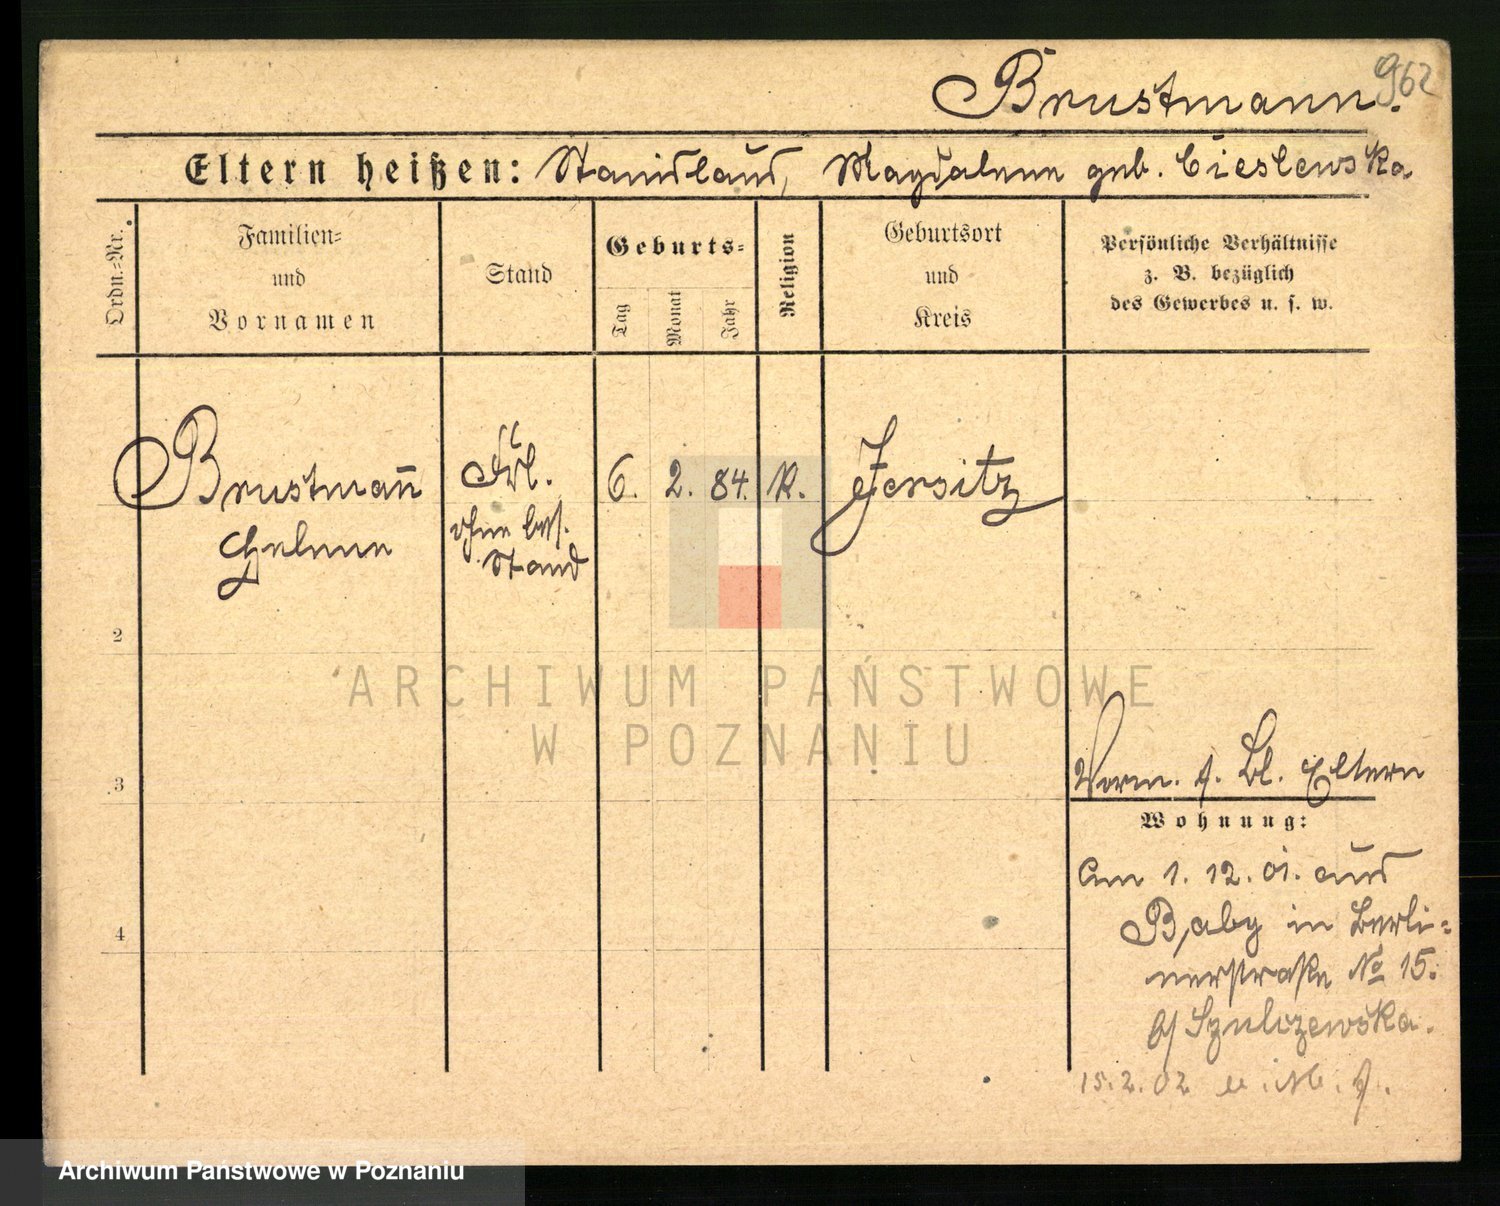 962
Brustmann.
Eltern heißen: Stanislaus, Magdalene geb. Cieslewska
Ordn.=Nr.
Familien=
und
Vornamen
Stand
Geburts=
Tag
Monat
Jahr
Religion
Geburtsort
und
Kreis
Persönliche Verhältnisse
z. B. bezüglich
des Gewerbes u. s. w.
Brustmañ
Helene
Frl.
ohne bes.
Stand
6. 2. 84. K. Jersitz
2
3
4
ARCHIWUM PAŃSTWOWE
W POZNANIU
Vorm. f. Bl. Eltern
Wohnung:
Am 1. 12. 01. aus
Baby in Berli=
nerstraße No 15.
b/ Szulczewska.
15.2.02
Archiwum Państwowe w Poznaniu